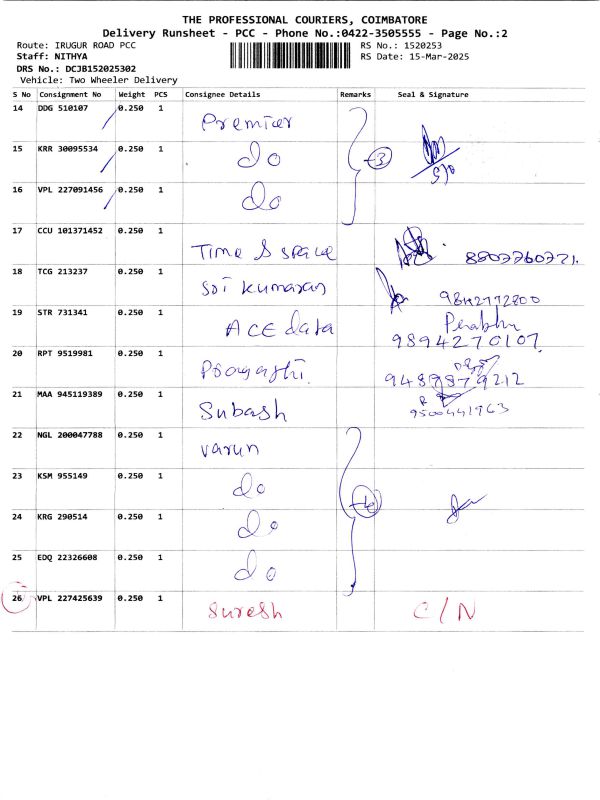 THE PROFESSIONAL COURIERS, COIMBATORE
Delivery Runsheet - PCC - Phone No.:0422-3505555 - Page No.:2
Route: IRUGUR ROAD PCC RS No.: 1520253
Staff: NITHYA RS Date: 15-Mar-2025
DRS No.: DCJB152025302
Vehicle: Two Wheeler Delivery
S No Consignment No Weight PCS Consignee Details Remarks Seal & Signature
14 DDG 510107 0.250 1 Premier
15 KRR 30095534 0.250 1 do 3
16 VPL 227091456 0.250 1 do
17 CCU 101371452 0.250 1 Time & space
18 TCG 213237 0.250 1 Sri Kumaran
19 STR 731341 0.250 1 ACE data Prabhu
9894270107
20 RPT 9519981 0.250 1
21 MAA 945119389 0.250 1 Subash 9500441963
22 NGL 200047788 0.250 1 varun
23 KSM 955149 0.250 1 do
24 KRG 290514 0.250 1 do
25 EDQ 22326608 0.250 1 do
26 VPL 227425639 0.250 1 Suresh C/N